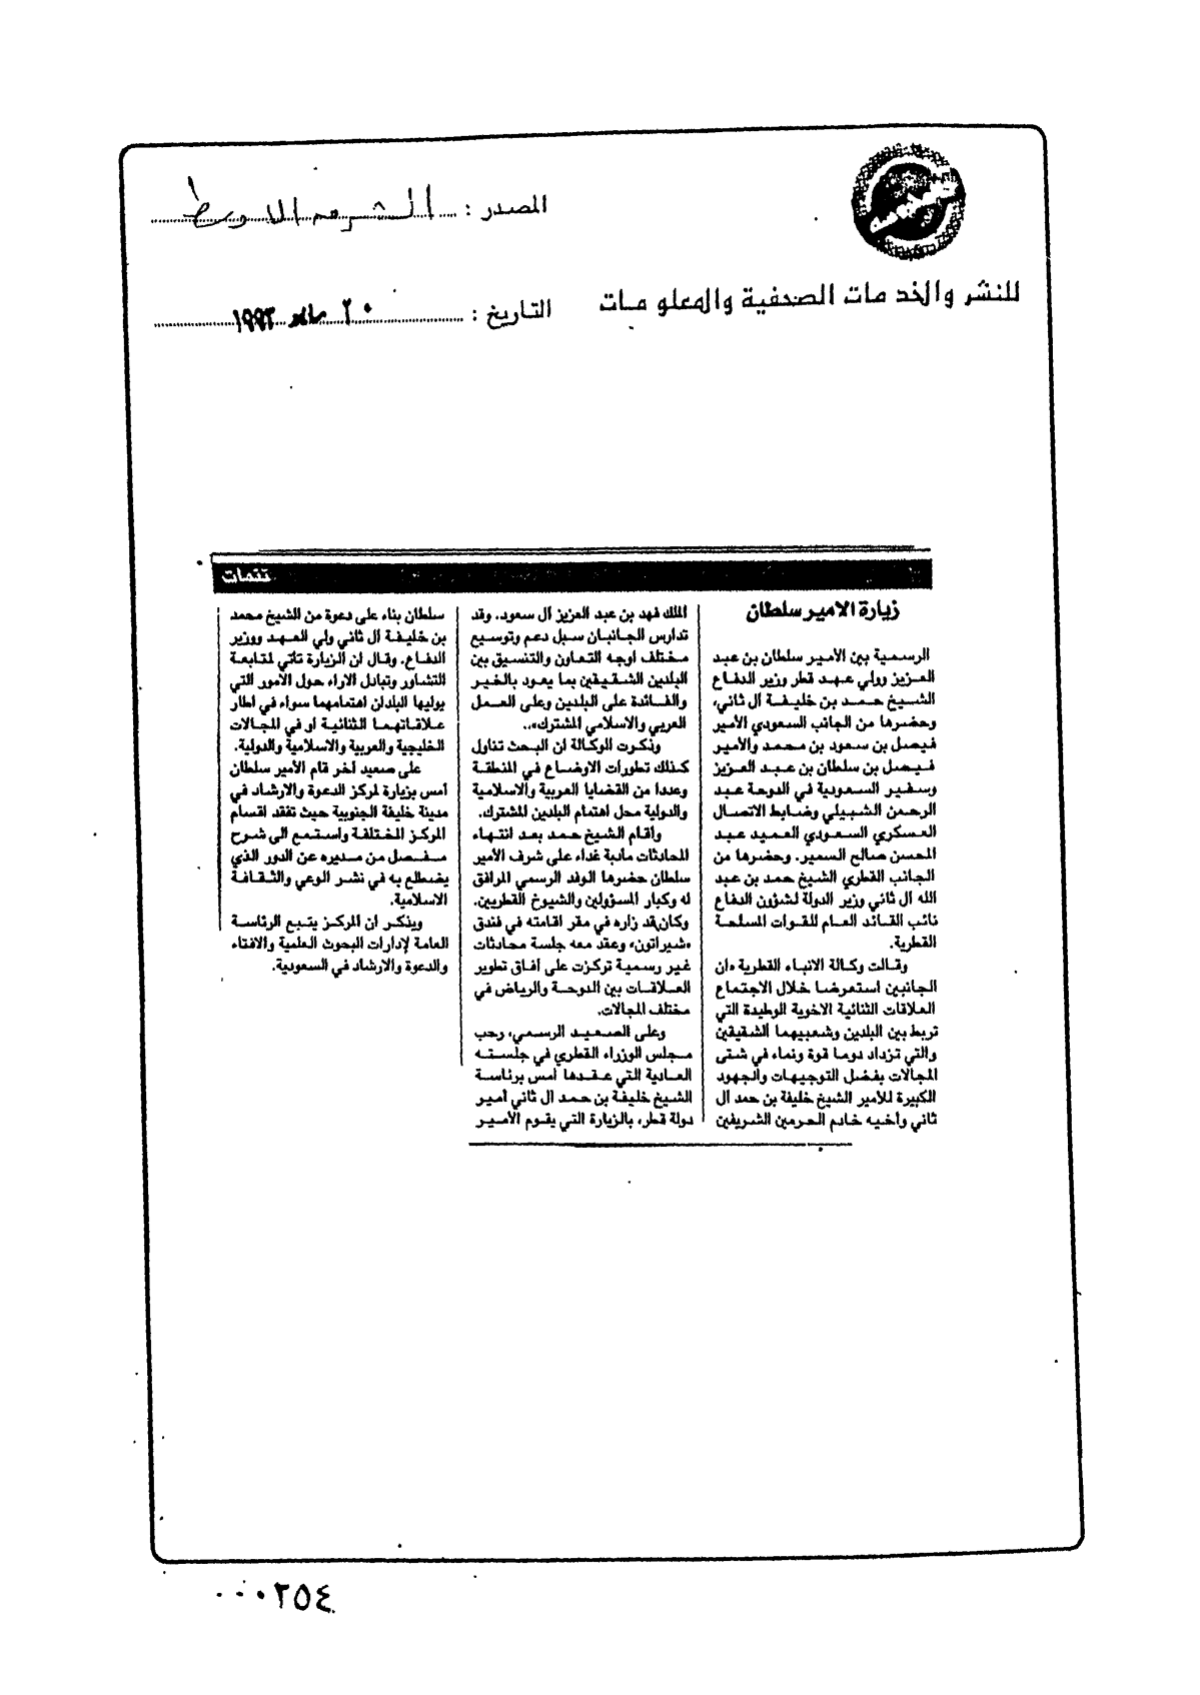 المصدر : الشرق الاوسط
للنشر والخدمات الصحفية والمعلومات
التاريخ : ٢٠ مايو ١٩٩٢
تتمات
زيارة الامير سلطان
الرسمية بين الامير سلطان بن عبد
العزيز وولي عهد قطر وزير الدفاع
الشيخ حمد بن خليفة آل ثاني،
وحضرها من الجانب السعودي الأمير
فيصل بن سعود بن محمد والأمير
فيصل بن سلطان بن عبد العزيز
وسفير السعودية في الدوحة عبد
الرحمن الشبيلي وضابط الاتصال
العسكري السعودي العميد عبد
المحسن صالح السمير. وحضرها من
الجانب القطري الشيخ حمد بن عبد
الله آل ثاني وزير الدولة لشؤون الدفاع
نائب القائد العام للقوات المسلحة
القطرية.
وقالت وكالة الانباء القطرية «ان
الجانبين استعرضا خلال الاجتماع
العلاقات الثنائية الاخوية الوطيدة التي
تربط بين البلدين وشعبيهما الشقيقين
والتي تزداد دوما قوة ونماء في شتى
المجالات بفضل التوجيهات والجهود
الكبيرة للأمير الشيخ خليفة بن حمد آل
ثاني وأخيه خادم الحرمين الشريفين
الملك فهد بن عبد العزيز آل سعود. وقد
تدارس الجانبان سبل دعم وتوسيع
مختلف اوجه التعاون والتنسيق بين
البلدين الشقيقين بما يعود بالخير
والفائدة على البلدين وعلى العمل
العربي والاسلامي المشترك»..
وذكرت الوكالة ان البحث تناول
كذلك تطورات الاوضاع في المنطقة
وعددا من القضايا العربية والاسلامية
والدولية محل اهتمام البلدين المشترك.
وأقام الشيخ حمد بعد انتهاء
المحادثات مأدبة غداء على شرف الأمير
سلطان حضرها الوفد الرسمي المرافق
له وكبار المسؤولين والشيوخ القطريين.
وكان قد زاره في مقر اقامته في فندق
«شيراتون» وعقد معه جلسة محادثات
غير رسمية تركزت على آفاق تطوير
العلاقات بين الدوحة والرياض في
مختلف المجالات.
وعلى الصعيد الرسمي، رحب
مجلس الوزراء القطري في جلسته
العادية التي عقدها أمس برئاسة
الشيخ خليفة بن حمد آل ثاني أمير
دولة قطر، بالزيارة التي يقوم الأمير
سلطان بناء على دعوة من الشيخ محمد
بن خليفة آل ثاني ولي العهد ووزير
الدفاع. وقال ان الزيارة تأتي لمتابعة
التشاور وتبادل الاراء حول الأمور التي
يوليها البلدان اهتمامهما سواء في اطار
علاقاتهما الثنائية او في المجالات
الخليجية والعربية والاسلامية والدولية.
على صعيد آخر قام الأمير سلطان
أمس بزيارة لمركز الدعوة والارشاد في
مدينة خليفة الجنوبية حيث تفقد اقسام
المركز المختلفة واستمع الى شرح
مفصل من مديره عن الدور الذي
يضطلع به في نشر الوعي والثقافة
الاسلامية.
ويذكر ان المركز يتبع الرئاسة
العامة لإدارات البحوث العلمية والافتاء
والدعوة والارشاد في السعودية.
٠٠٠٢٥٤